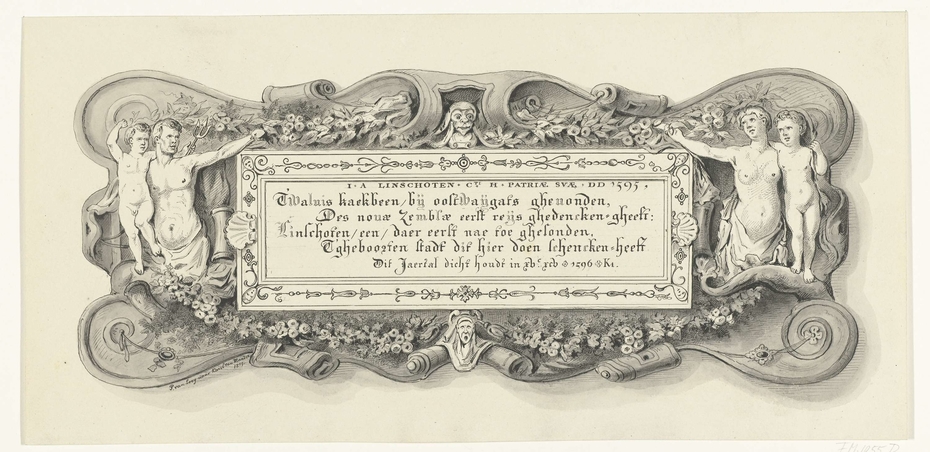 I · A LINSCHOTEN · CV̄ H · PATRIÆ SVÆ · DD 1595,
Twaluis kaekbeen/ bij oostwaijgats gheuonden,
Des nouæ Zemblæ eerst reijs ghedencken-gheeft:
Linschoten/ een/ daer eerst nae toe ghesonden,
Tgheboorten stadt dit hier doen schencken-heeft
Dit Jaertal dicht houdt in xvc xcv 1596 K1.
F.M. 1055 D